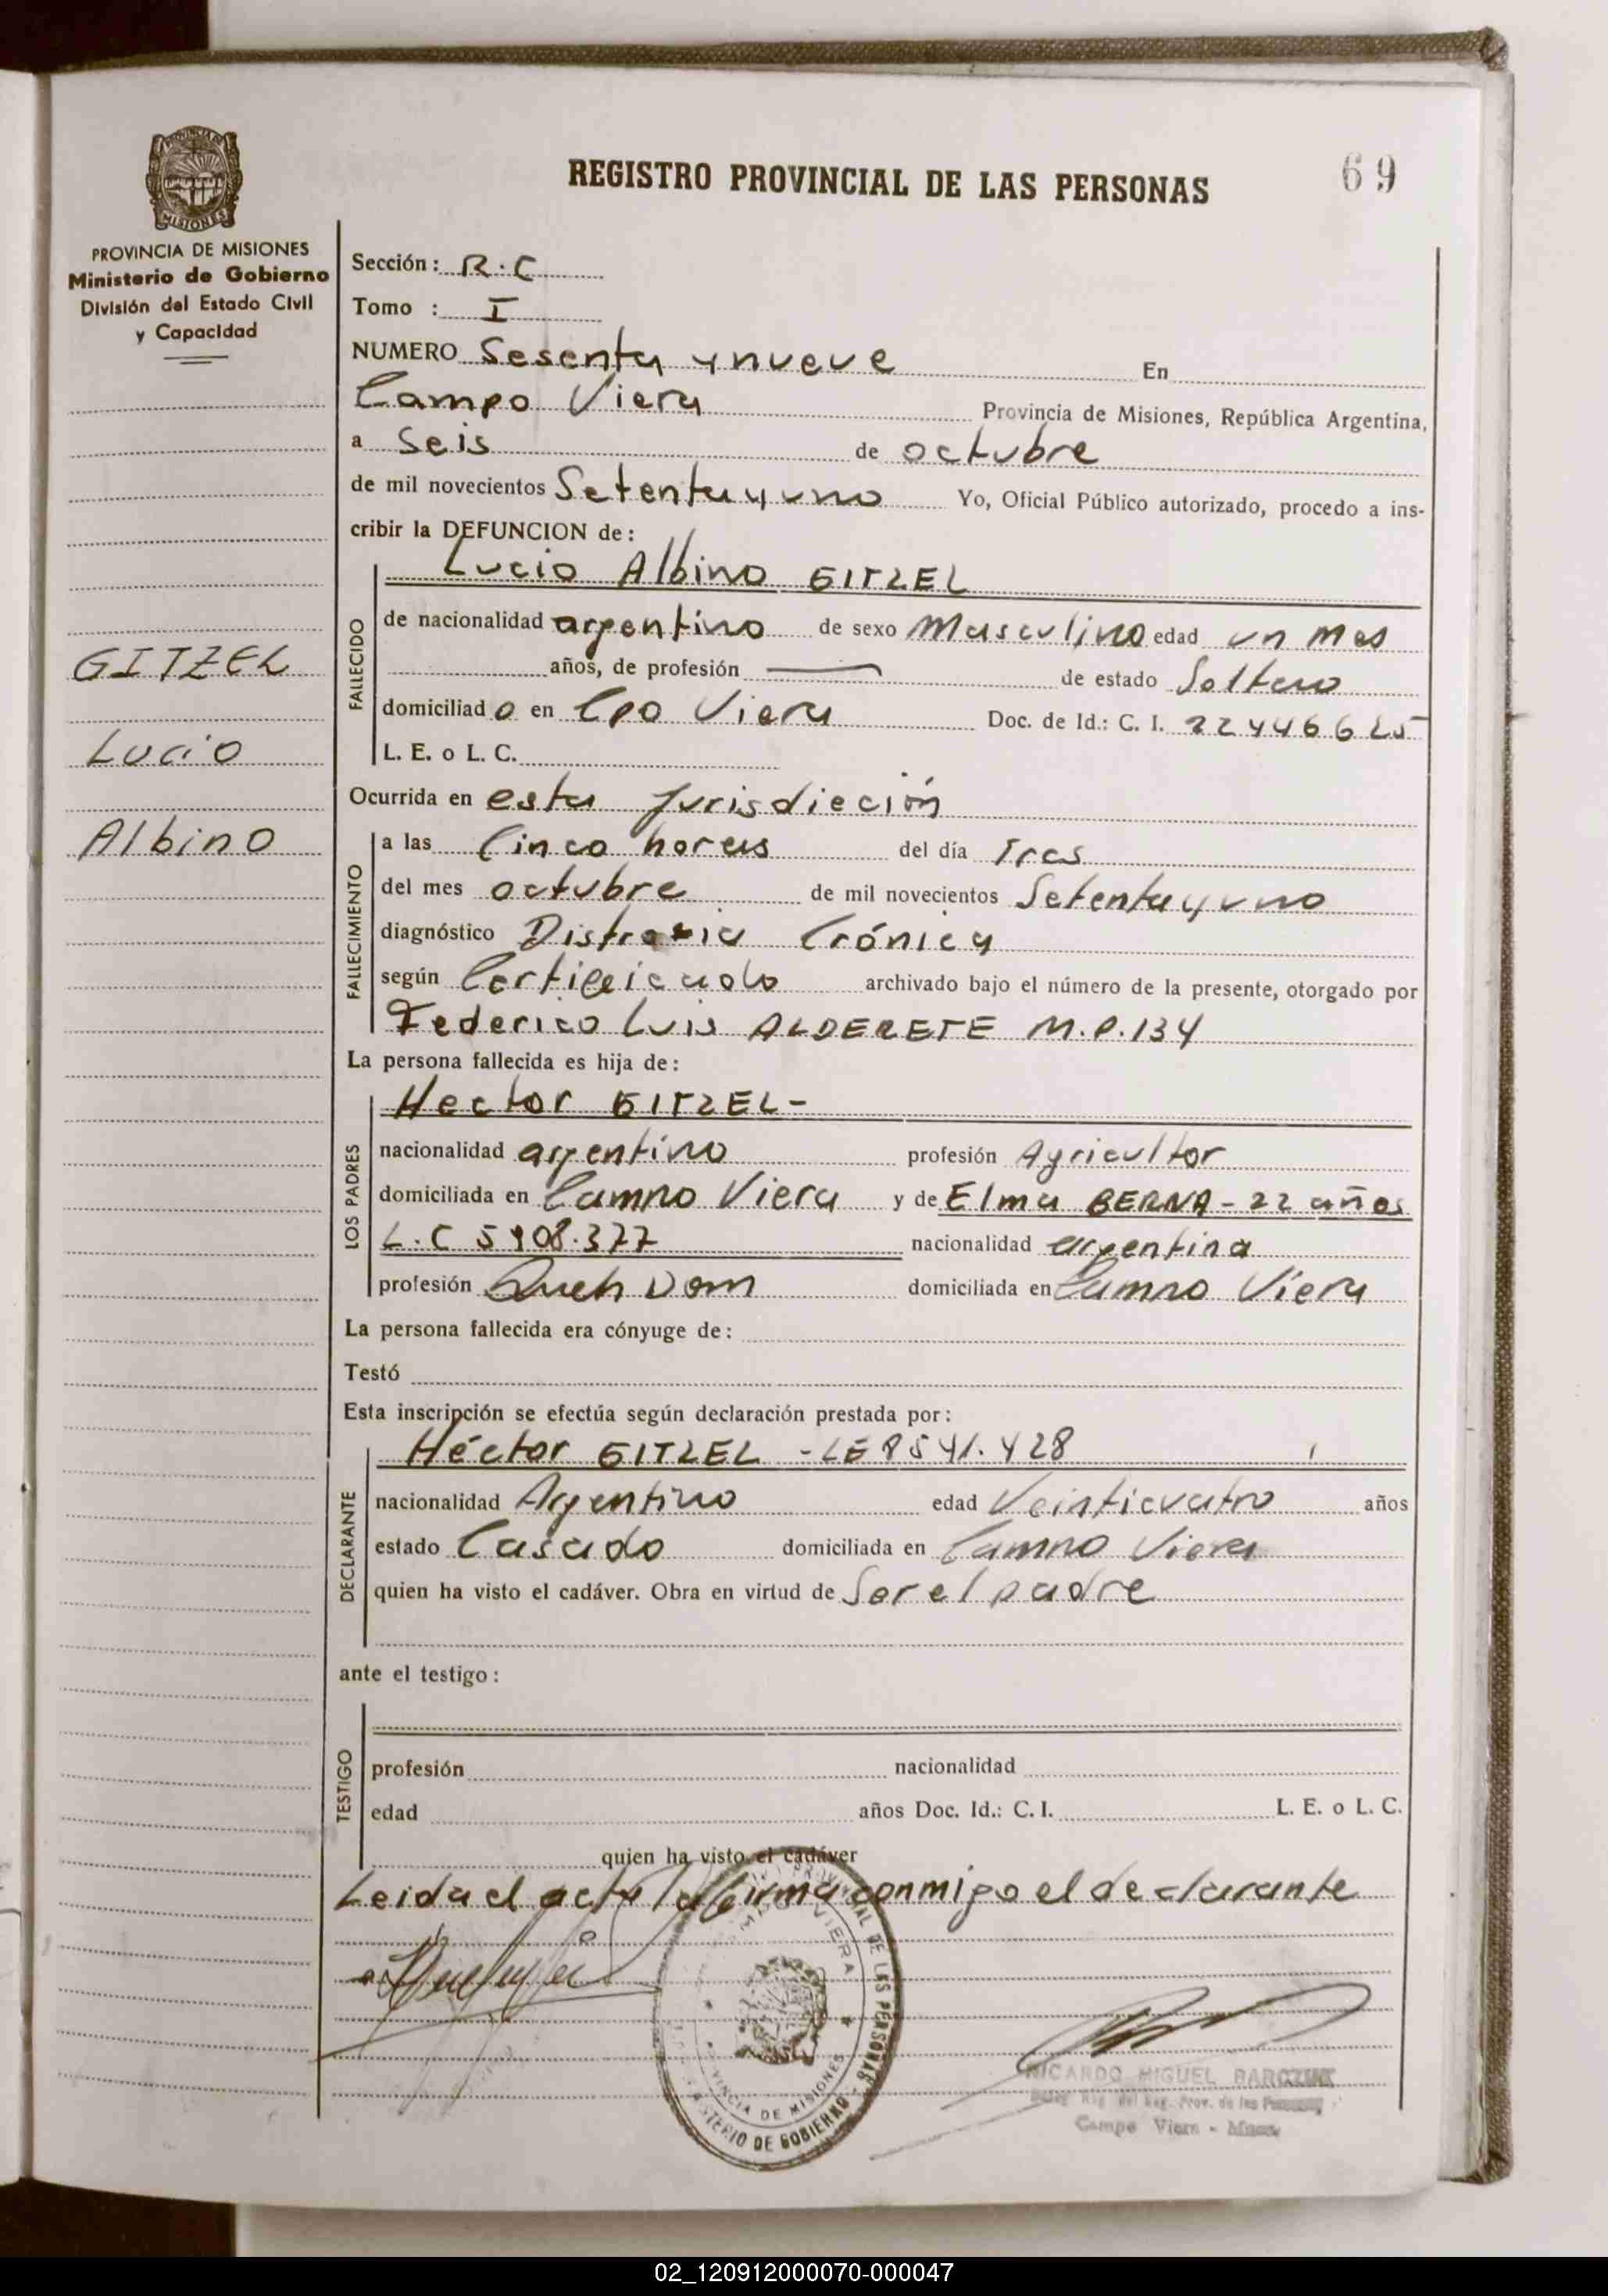 REGISTRO PROVINCIAL DE LAS PERSONAS
69
PROVINCIA DE MISIONES
MISIONES
PROVINCIA DE MISIONES
Ministerio de Gobierno
División del Estado Civil
y Capacidad
GITZEL
Lucio
Albino
Sección: R.C
Tomo : I
NUMERO Sesenta y nueve En
Campo Viera Provincia de Misiones, República Argentina,
a Seis de octubre
de mil novecientos Setenta y uno Yo, Oficial Público autorizado, procedo a ins-
cribir la DEFUNCION de:
Lucio Albino GITZEL
FALLECIDO
de nacionalidad argentino de sexo Masculino edad un mes
años, de profesión de estado Soltero
domiciliado en Cpo Viera Doc. de Id.: C. I. 22446625
L. E. o L. C.
Ocurrida en esta Jurisdicción
FALLECIMIENTO
a las Cinco horas del día Tres
del mes octubre de mil novecientos Setenta y uno
diagnóstico Crónica
según Certificado archivado bajo el número de la presente, otorgado por
Federico Luis ALDERETE M.P.134
La persona fallecida es hija de:
LOS PADRES
Hector GITZEL-
nacionalidad argentino profesión Agricultor
domiciliada en Campo Viera y de Elma BERNA - 22 años
L.C 5908.377 nacionalidad argentina
profesión Dom domiciliada en Campo Viera
La persona fallecida era cónyuge de:
Testó
Esta inscripción se efectúa según declaración prestada por:
DECLARANTE
Héctor GITZEL - LE 8541.428
nacionalidad Argentino edad Veinticuatro años
estado Casado domiciliada en Campo Viera
quien ha visto el cadáver. Obra en virtud de Ser el padre
ante el testigo:
TESTIGO
profesión nacionalidad
edad años Doc. Id.: C. I. L. E. o L. C.
quien ha visto el cadáver
Leida el acta la firma conmigo el declarante
PROVINCIAL DE LAS PERSONAS
VIERA
PROVINCIA DE MISIONES
MINISTERIO DE GOBIERNO
RICARDO MIGUEL
Reg. Prov. de las
Campo Viera - Mnes.
02_120912000070-000047